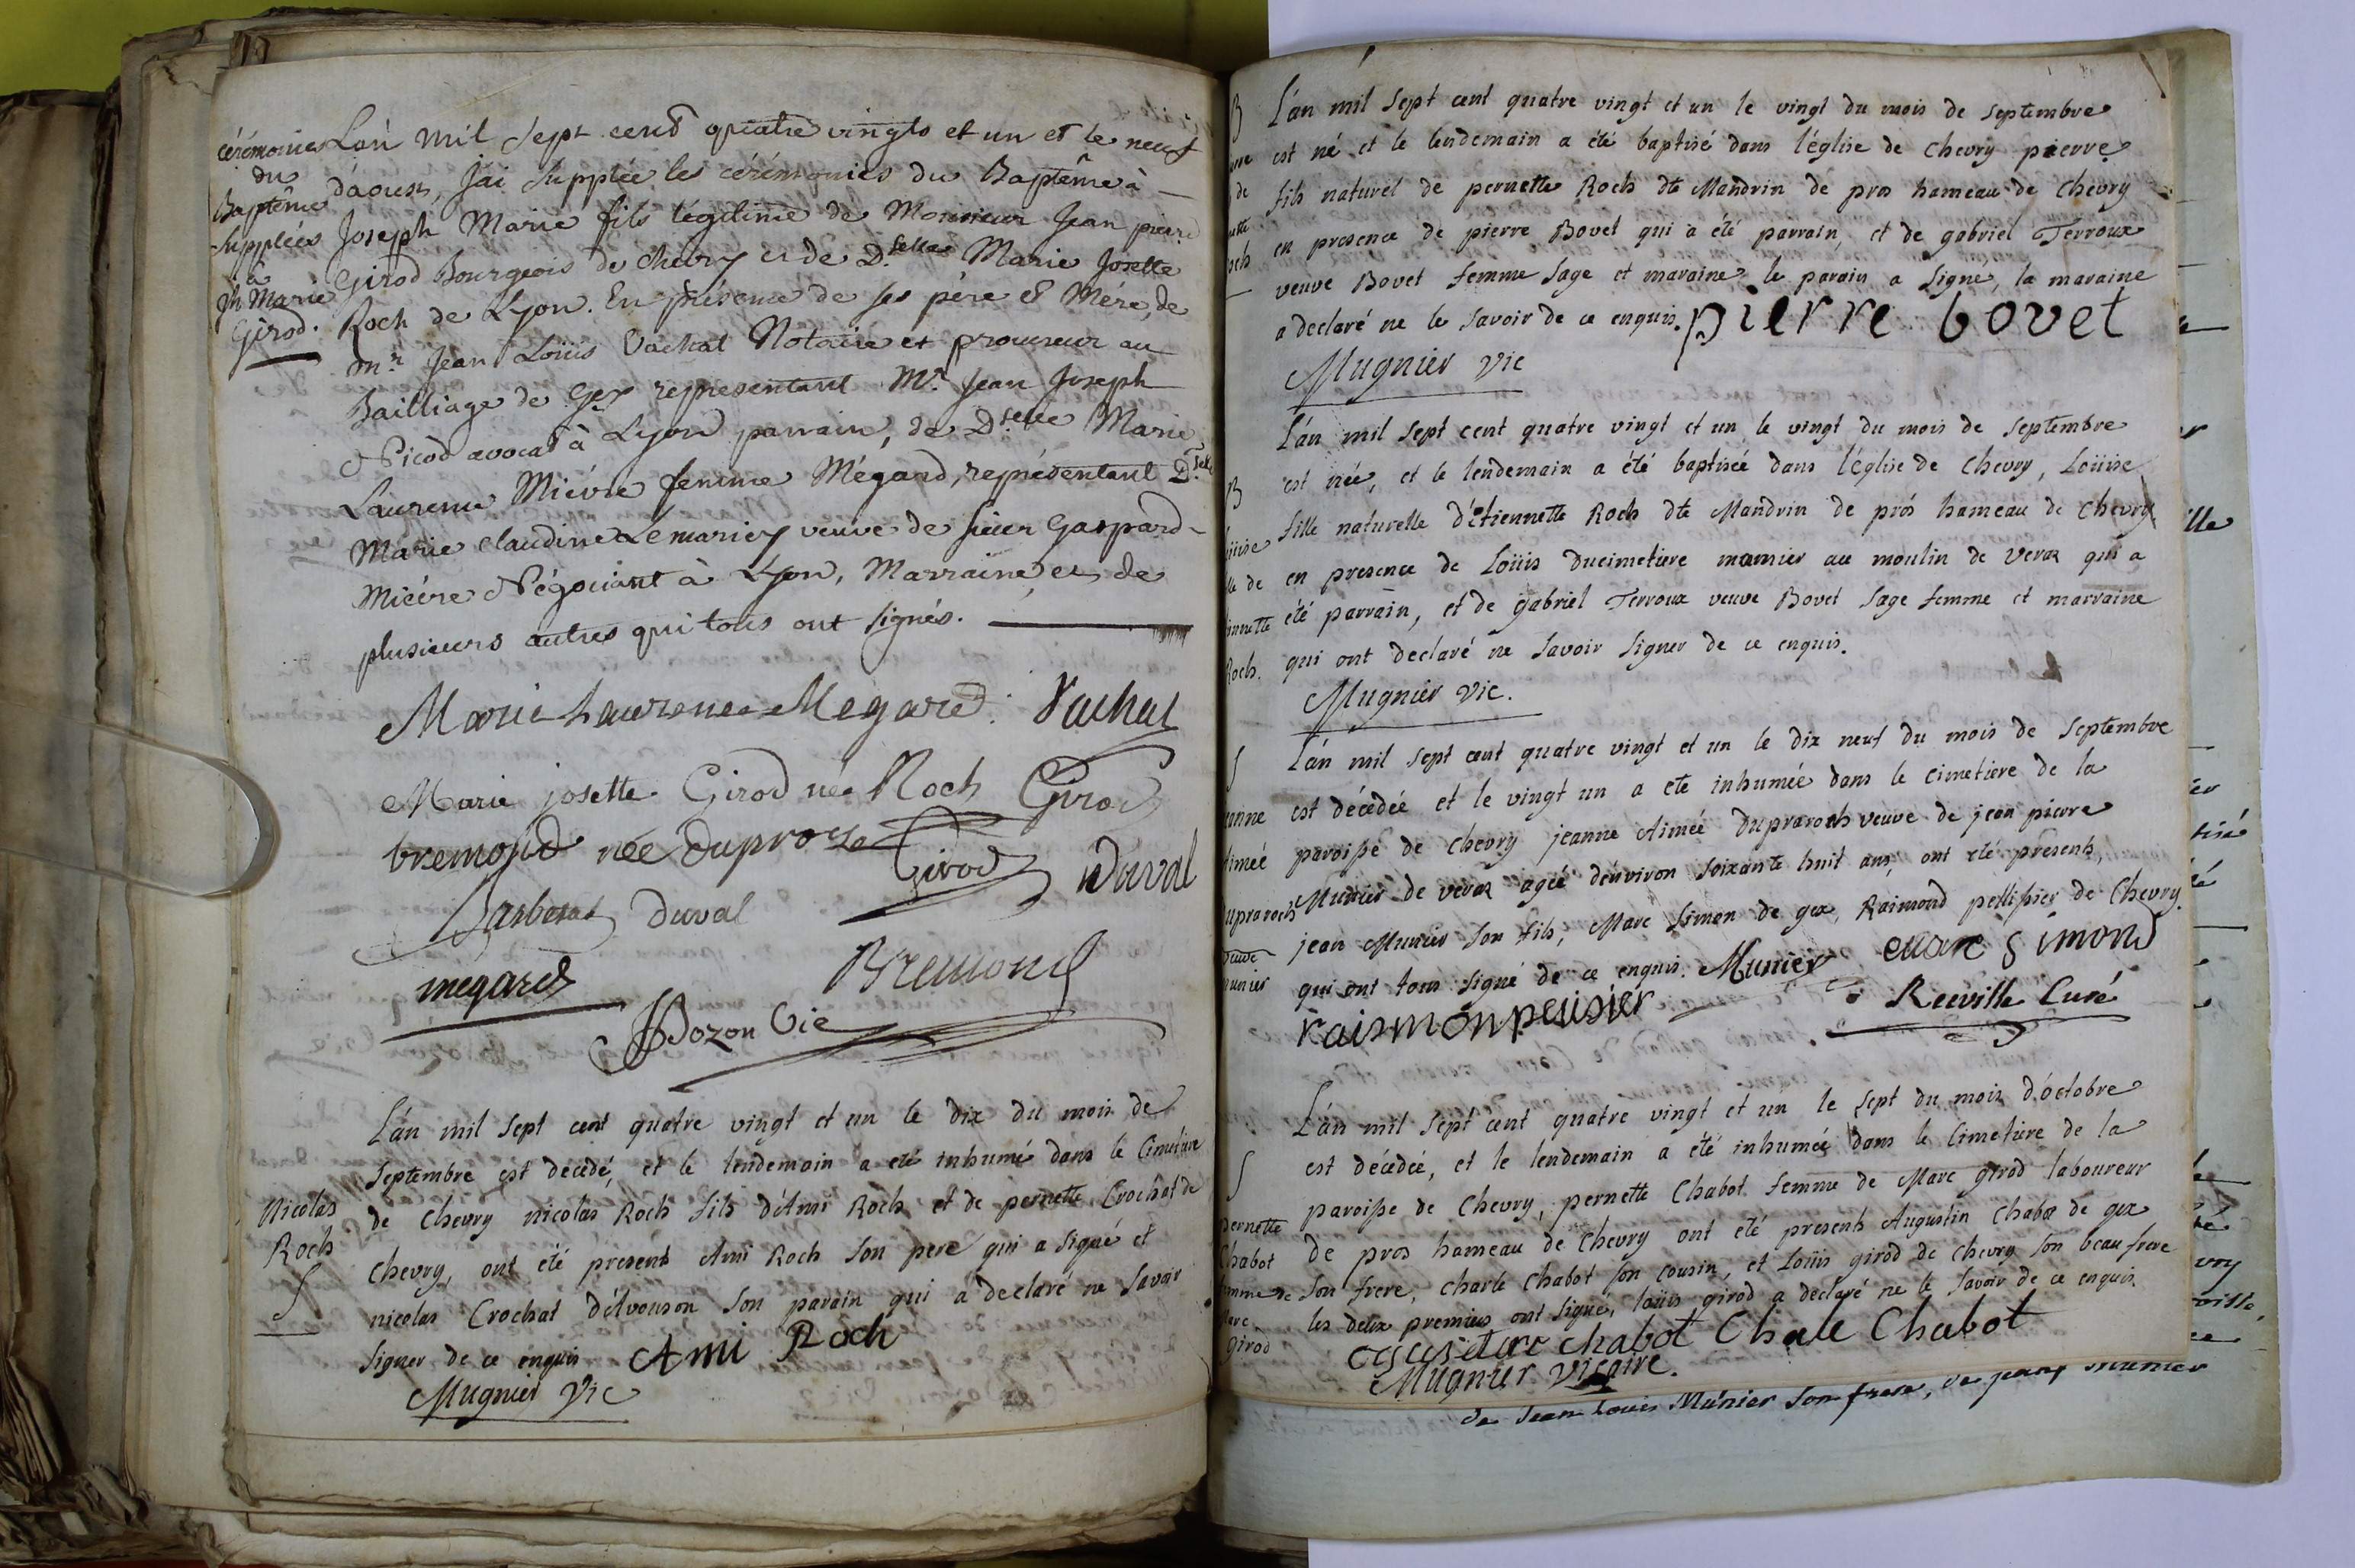 cérémonies
du
Baptême
Supplées
à
Jh Marie
Girod.
L'an mil sept cend quatre vingts et un et le neuf
d'aoust, J'ai Supplée les cérémonies du Baptême à
Joseph Marie fils légitime de Monsieur Jean pierre
Girod Bourgeois de Chevry et de D.selle Marie Josette
Roch de Lyon. En présence de ses père & Mére, de
mr. Jean Loüis Vachat Notaire et procureur au
Bailliage de Gex representant Mr. Jean Joseph
Nicod avocat à Lyon parrain, de D.selle Marie
Laurence Miévre femme Mégard, représentant D.selle
Marie Claudine Lemariey veuve de sieur Gaspard
Miévre Négociant à Lyon, Marraine, et de
plusieurs autres qui tous ont signés.
Marie Laurence Megard. Vachat
Marie josette Girod née Roch Girod
bremond née duproz Girod Duval
Barberat Duval
mégard Bremond
JJ Dozon Vic
Nicolas
Roch
S
L'an mil sept cent quatre vingt et un le dix du mois de
septembre est decedé, et le lendemain a eté inhumé dans le Cimetiere
de Chevry nicolas Roch fils d'Ami Roch et de pernette Crochat de
Chevry, ont eté present Ami Roch son pere qui a signé et
nicolas Crochat d'élvouson son parain qui a declaré ne savoir
signer de ce enquis Ami Roch
Mugnier Vic
B
L'an mil sept cent quatre vingt et un le vingt du mois de septembre
est né et le lendemain a été baptisé dans l'église de Chevry pierre
fils naturel de pernette Roch dte Mandrin de pros hameau de Chevry
en presence de pierre Bovet qui a été parrain, et de gabriel Terroux
veuve Bovet femme sage et maraine, le parain a signé, la maraine
a declaré ne le savoir de ce enquis. pierre bovet
Mugnier Vic
B
L'an mil sept cent quatre vingt et un le vingt du mois de septembre
est née, et le lendemain a été baptisée dans l'église de Chevry, Loüise
fille naturelle d'étiennette Roch dte Mandrin de prós hameau de Chevry
en presence de Loüis Ducimetiere mounier au moulin de veraz qui a
été parrain, et de gabriel Terroux veuve Bovet sage femme et marraine
qui ont declaré ne savoir signer de ce enquis.
Mugnier Vic.
S
L'an mil sept cent quatre vingt et un le dix neuf du mois de septembre
est décedée et le vingt un a eté inhumée dans le cimetiere de la
paroisse de Chevry jeanne Aimée Dupraroch veuve de jean pierre
Munier de veraz agée d'environ soixante huit ans, ont eté presents,
jean Munier son fils, Marc Simon de gex, Raimond pellissier de Chevry
qui ont tous signé de ce enquis. Munier marc simond
raismonpelisier Reeville Curé
S
pernette
Chabot
femme de
Marc
Girod
L'an mil sept cent quatre vingt et un le sept du mois d'octobre
est décedée, et le lendemain a été inhumée dans le cimetiere de la
paroisse de Chevry, pernette Chabot femme de Marc girod laboureur
de pros hameau de Chevry ont eté presents Augustin Chabot de gex
son frere, Charle Chabot son cousin, et Loüis girod de Chevry son beau frere
les deux premiers ont signé, loüis girod a declaré ne le savoir de ce enquis.
chabot Chale Chabot
Mugnier vicaire.
de Jean Louis Munier son frere, de jean munier